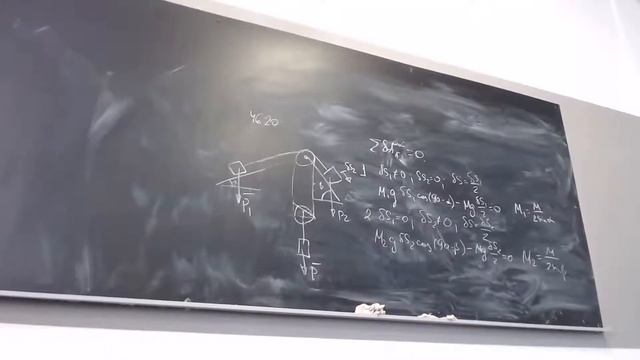 46.20
∑δA_F=0.
1 δS₁≠0, δS₂=0, δS=δS₁/2
M₁g δS₁ cos(90-α)-Mg δS₁/2=0 M₁=M/2sinα
2 δS₁=0, δS₂≠0, δS=δS₂/2
M₂g δS₂ cos(90-β)-Mg δS₂/2=0 M₂=M/2sinβ
δS₂
P₁
P₂
P